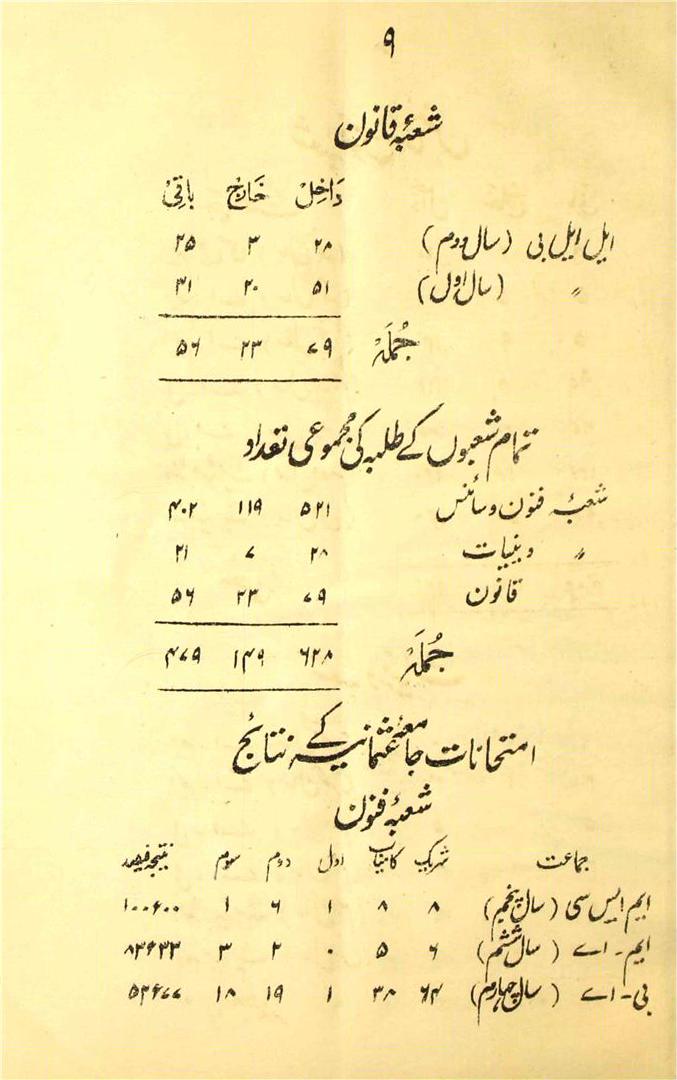 ۹
شعبۂ قانون
داخل خارج باقی
ایل ایل بی (سال دوم) ۲۸ ۳ ۲۵
〃 (سال اول) ۵۱ ۲۰ ۳۱
جملہ ۷۹ ۲۳ ۵۶
تمام شعبوں کے طلبہ کی مجموعی تعداد
شعبۂ فنون و سائنس ۵۲۱ ۱۱۹ ۴۰۲
〃 دینیات ۲۸ ۷ ۲۱
قانون ۷۹ ۲۳ ۵۶
جملہ ۶۲۸ ۱۴۹ ۴۷۹
امتحانات جامعہ عثمانیہ کے نتائج
شعبۂ فنون
جماعت شریک کامیاب اول دوم سوم نتیجہ فیصد
ایم ایس سی (سال پنجم) ۸ ۸ ۱ ۶ ۱ ۱۰۰ء۰۰
ایم - اے (سال ششم) ۶ ۵ ۰ ۲ ۳ ۸۳ء۳۳
بی - اے (سال چہارم) ۶۴ ۳۸ ۱ ۱۹ ۱۸ ۵۳ء۷۷